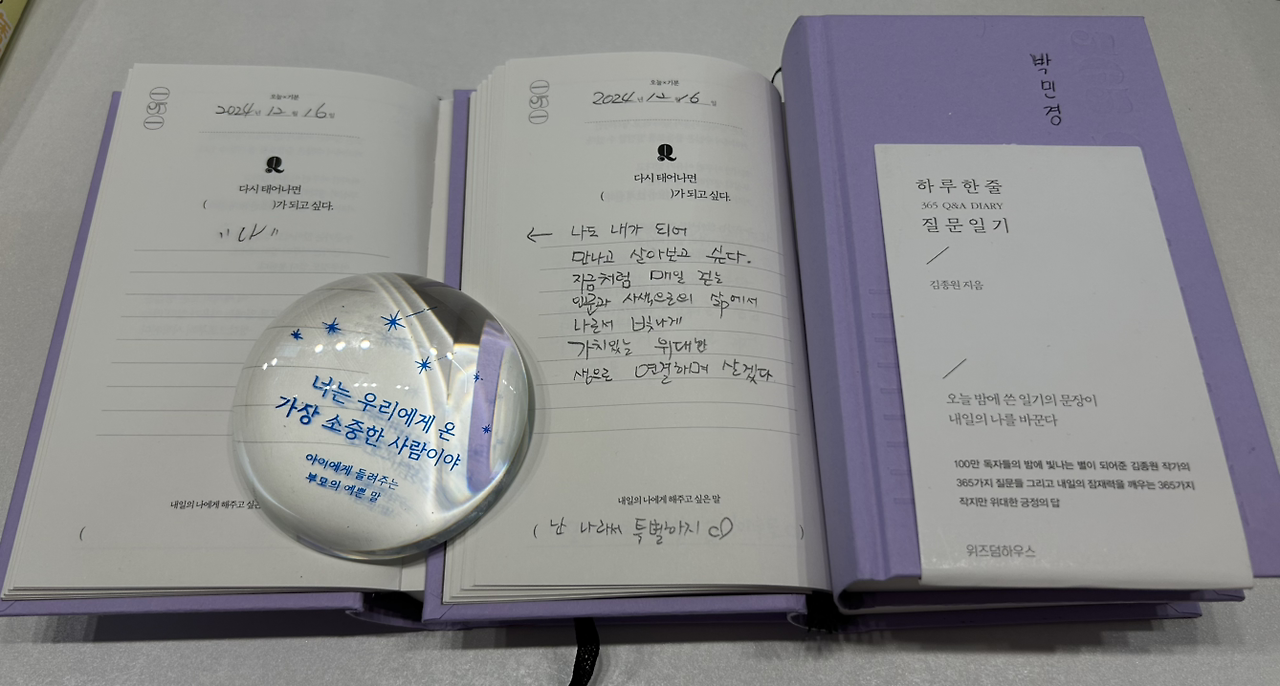 050
오늘의 기분
2024년 12월 16일
Q
다시 태어나면
( )가 되고 싶다.
"나"
내일의 나에게 해주고 싶은
(
너는 우리에게 온
가장 소중한 사람이야
아이에게 들려주는
부모의 예쁜 말
050
오늘의 기분
2024년 12월 16일
Q
다시 태어나면
( )가 되고 싶다.
← 나도 내가 되어
만나고 살아보고 싶다.
지금처럼 매일 걷는
인문과 사색으로의 삶에서
나로서 빛나게
가치있는 위대한
생으로 연결하며 살겠다
내일의 나에게 해주고 싶은 말
( 난 나라서 특별하지 )
박민경
하루 한 줄
365 Q&A DIARY
질문 일기
김종원 지음
오늘 밤에 쓴 일기의 문장이
내일의 나를 바꾼다
100만 독자들의 밤에 빛나는 별이 되어준 김종원 작가의
365가지 질문들 그리고 내일의 잠재력을 깨우는 365가지
작지만 위대한 긍정의 답
위즈덤하우스